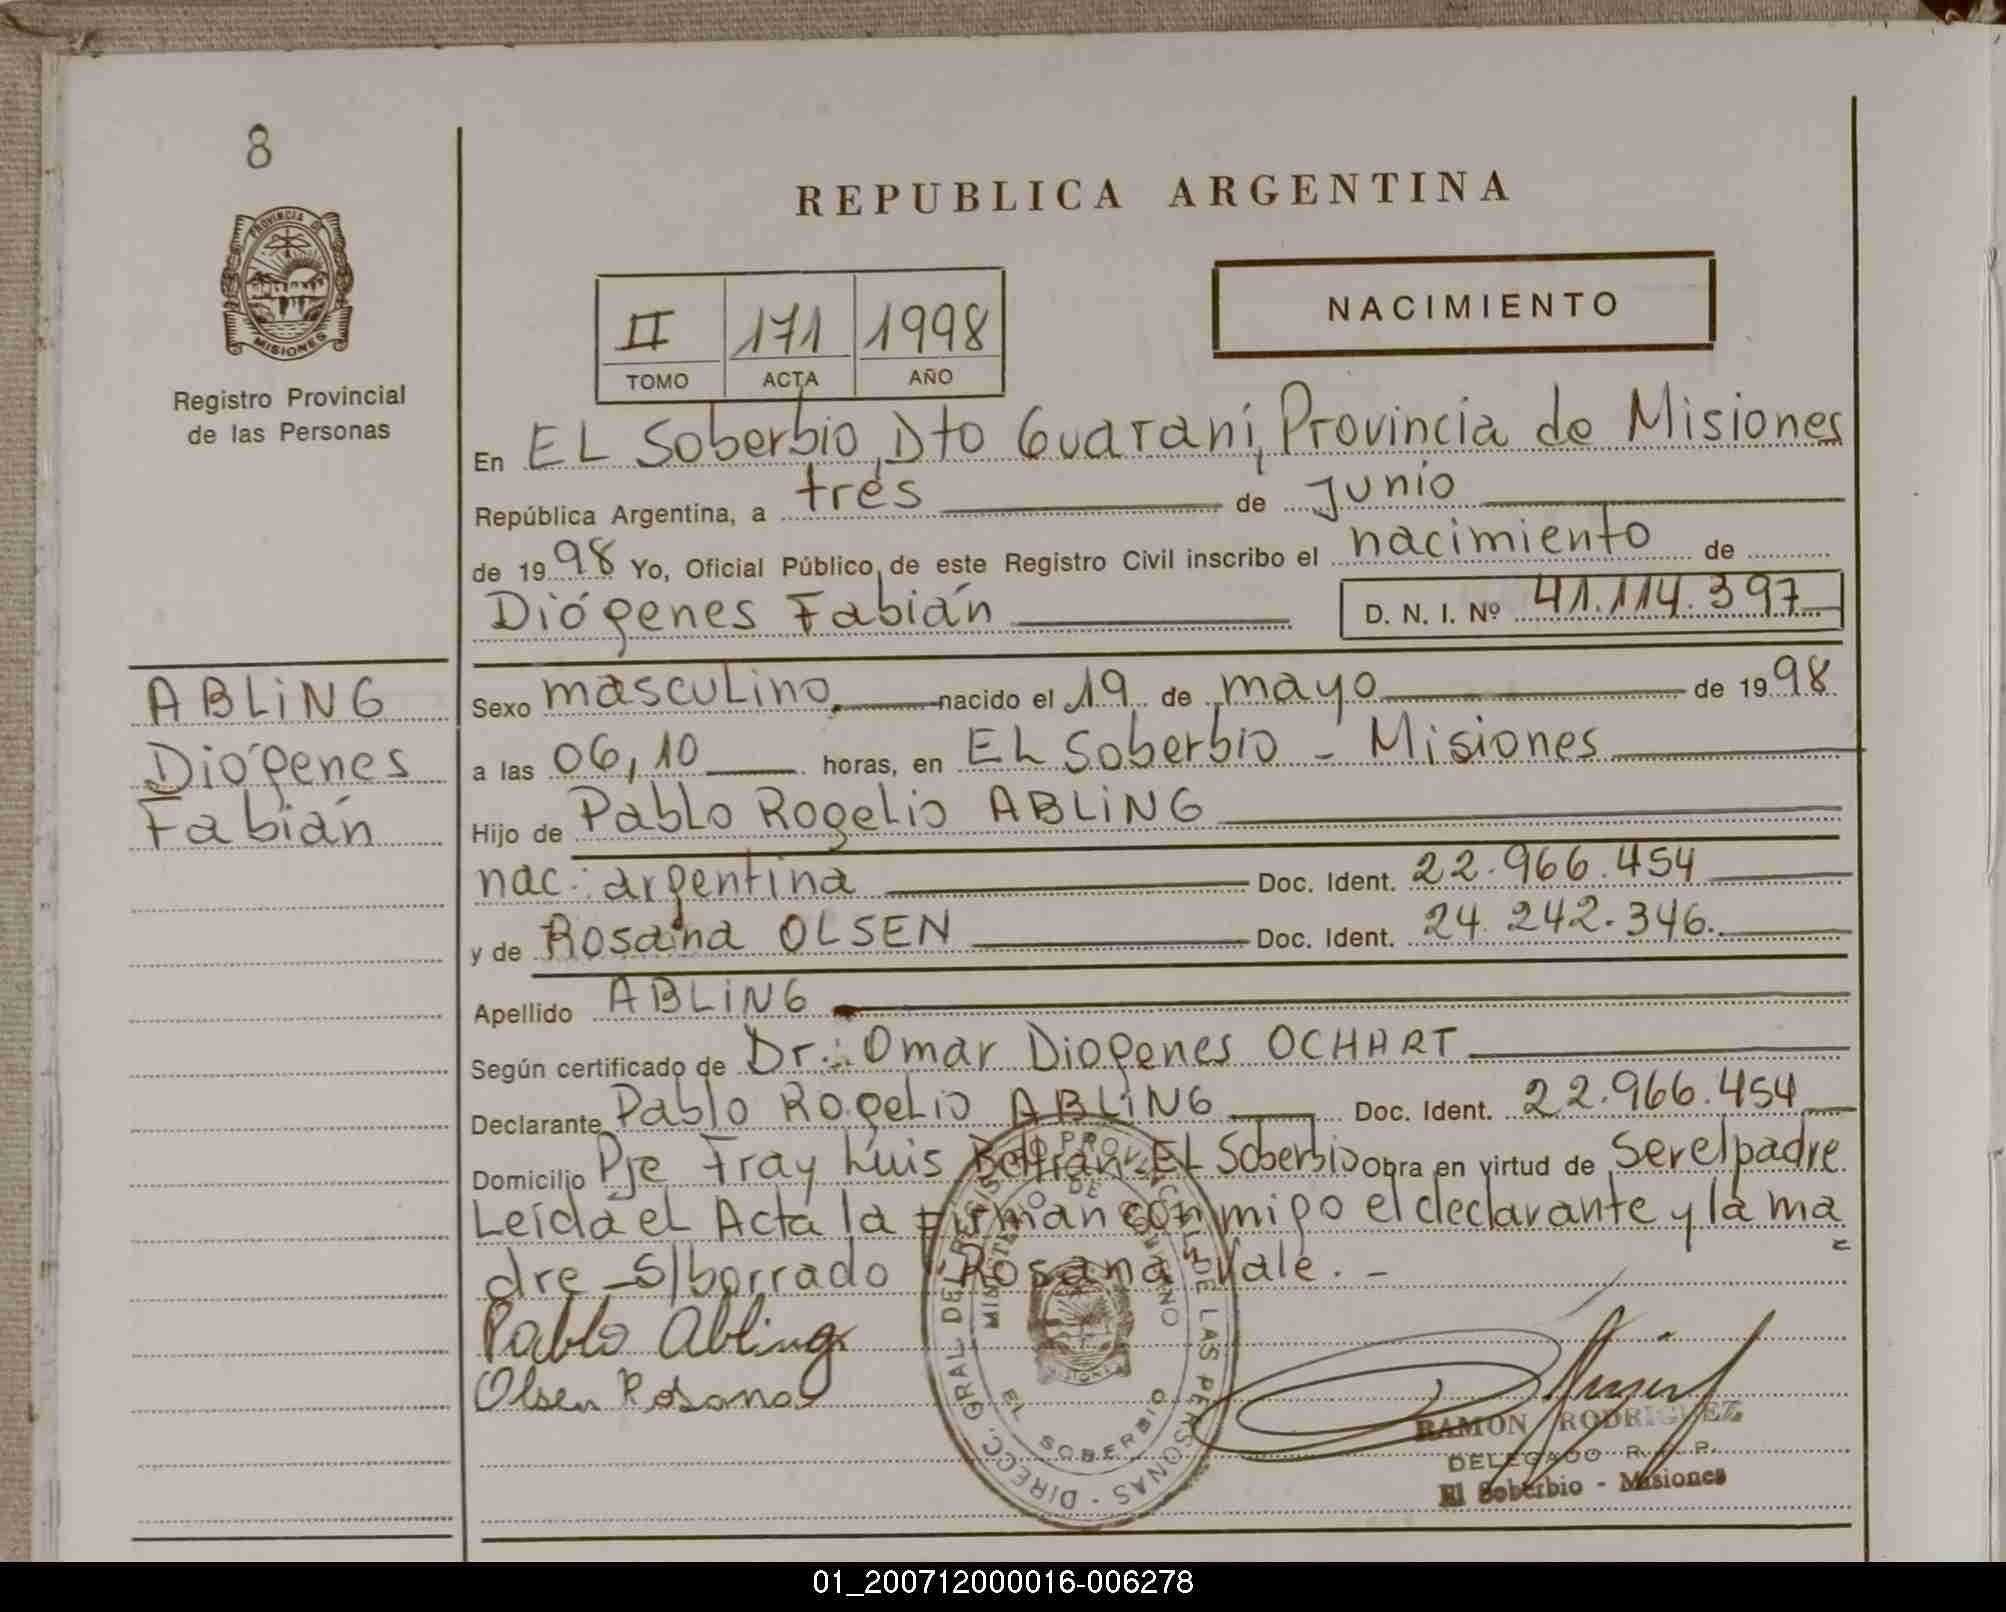 8
REPUBLICA ARGENTINA
PROVINCIA DE
MISIONES
Registro Provincial
de las Personas
II 171 1998
TOMO ACTA AÑO
NACIMIENTO
En EL Soberbio, Dto Guaraní, Provincia de Misiones
República Argentina, a tres de junio
de 1998 Yo, Oficial Público de este Registro Civil inscribo el nacimiento de
Diógenes Fabián D. N. I. Nº 41.114.397
ABLING
Diógenes
Fabián
Sexo masculino nacido el 19 de mayo de 1998
a las 06,10 horas, en EL Soberbio - Misiones
Hijo de Pablo Rogelio ABLING
nac: argentina Doc. Ident. 22.966.454
y de Rosana OLSEN Doc. Ident. 24.242.346.
Apellido ABLING
Según certificado de Dr.: Omar Diogenes OCHART
Declarante Pablo Rogelio ABLING Doc. Ident. 22.966.454
Domicilio Pje Fray Luis Beltrán - EL Soberbio Obra en virtud de ser el padre
Leída el Acta la firman conmigo el declarante y la ma
dre - S/borrado "Rosana" Vale. -
Pablo Abling
Olsen Rosana
DIRECC. GRAL DEL REGISTRO PROVINCIAL DE LAS PERSONAS
MINISTERIO DE GOBIERNO
MISIONES
EL SOBERBIO
RAMON RODRIGUEZ
DELEGADO R. P. P.
El Soberbio - Misiones
01_200712000016-006278